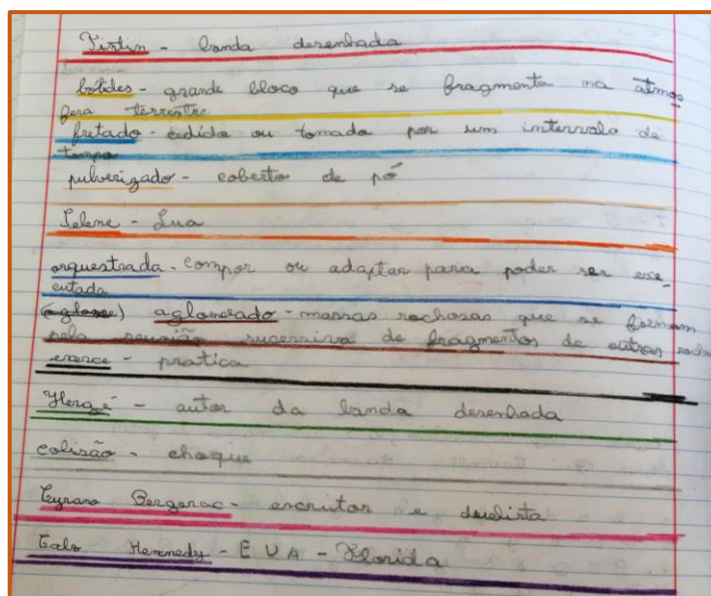 Tintin - banda desenhada
bólides - grande bloco que se fragmenta na atmos
fera terrestre
fretado - cedido ou tomado por um intervalo de
tempo
pulverizado - coberto de pó
Selene - Lua
orquestrada - compor ou adaptar para poder ser exe_
cutada
aglomerado - massas rochosas que se formam
pela reunião sucessiva de fragmentos de outras
exerce - pratica
Hergé - autor da banda desenhada
colisão - choque
Cyrano Bergerac - escritor e duelista
Cabo Kennedy - E U A - Florida